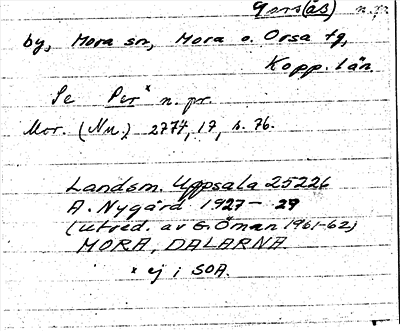 Gors(ås) n.pr.
by, Mora sn, Mora o. Orsa tg,
Kopp. län.
Se Per* n.pr.
Mor. (Nu.) 2774, 17, s. 76.
Landsm. Uppsala 25226
A. Nygård 1927-29
(utred. av G. Öman 1961-62)
MORA, DALARNA.
* ej i SOA.